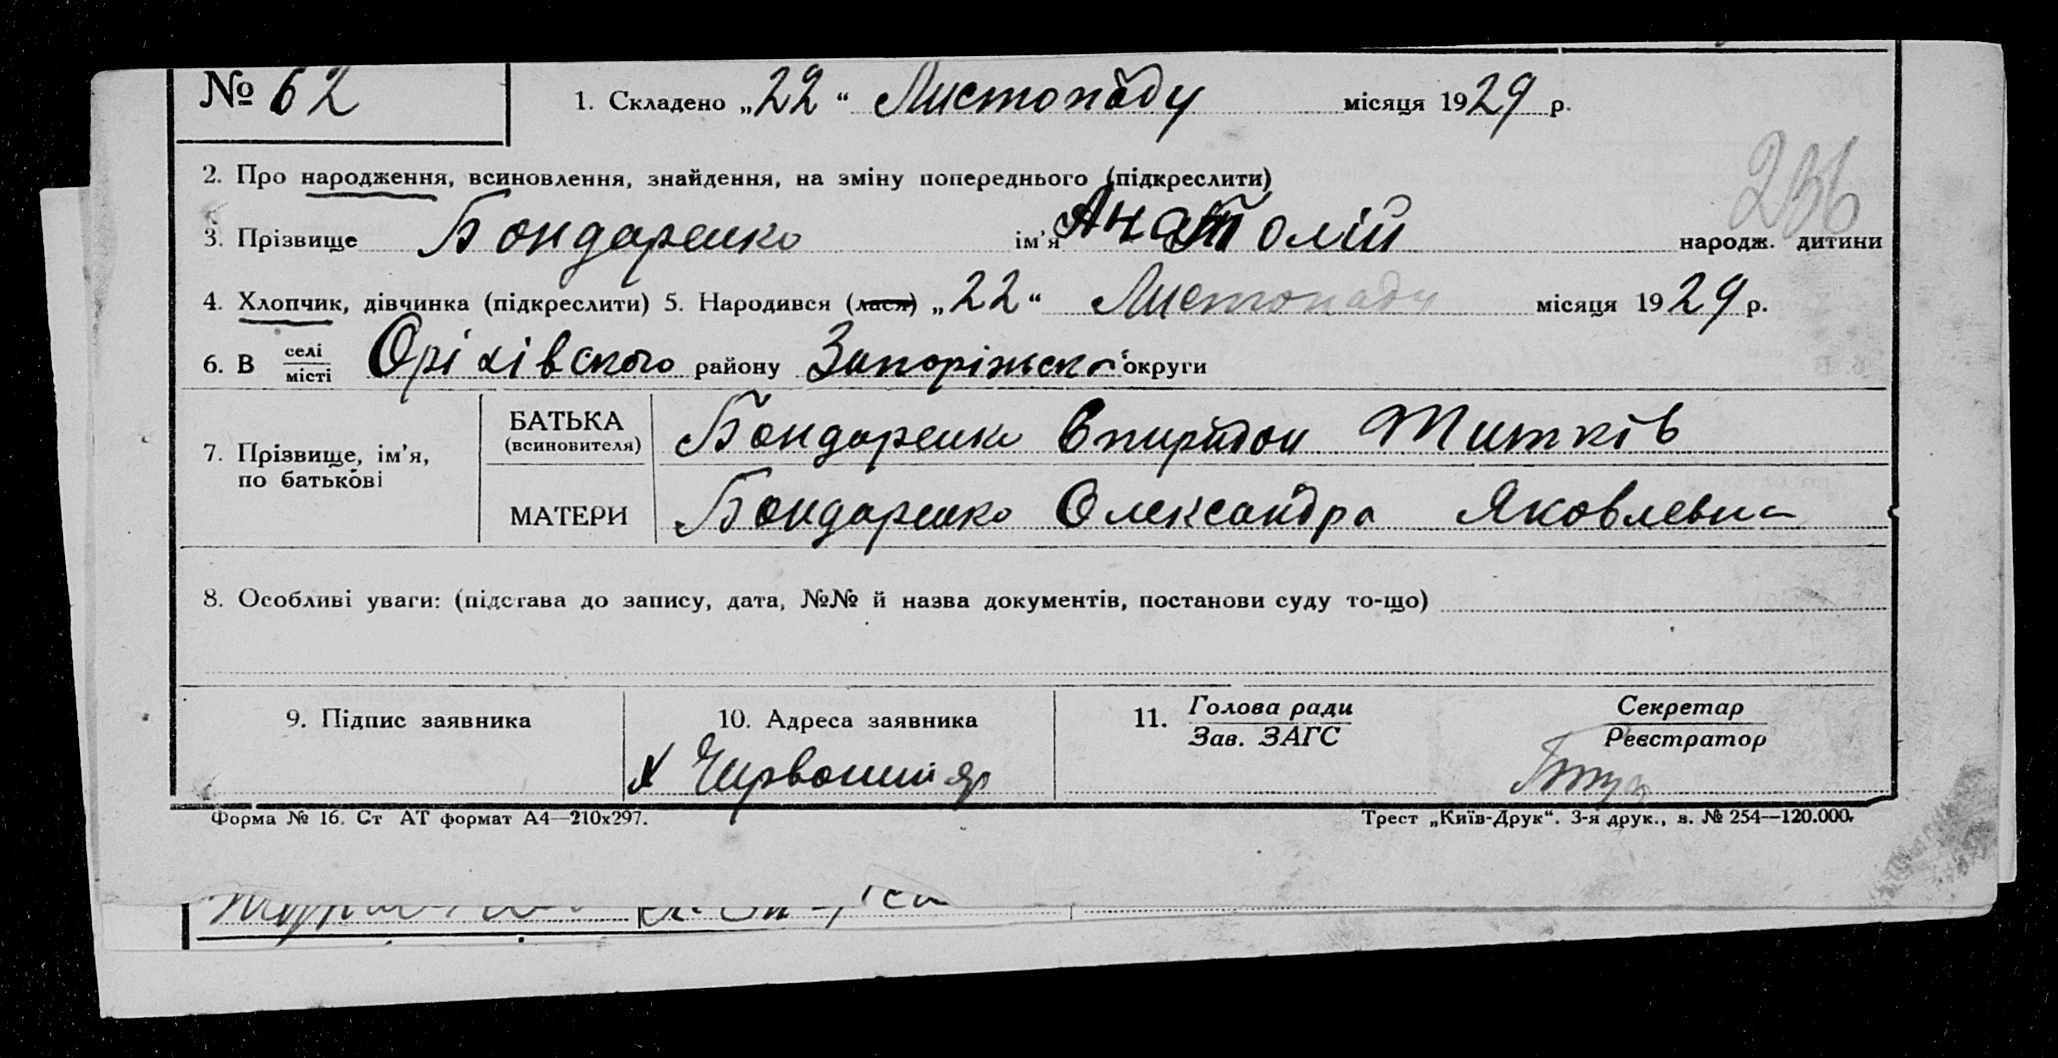 № 62
1. Складено „22“ Листопаду місяця 1929 р.
256
2. Про народження, всиновлення, знайдення, на зміну попереднього (підкреслити)
3. Прізвище Бондаренко ім'я Анатолій народж. дитини
4. Хлопчик, дівчинка (підкреслити) 5. Народився (лася) „22“ Листопаду місяця 1929 р.
6. В селі місті Оріхівского району Запоріжскої округи
7. Прізвище, ім'я, по батькові
БАТЬКА (всиновителя) Бондаренко Спиридон Титков
МАТЕРИ Бондаренко Олександра Яковлевна
8. Особливі уваги: (підстава до запису, дата, №№ й назва документів, постанови суду то-що)
9. Підпис заявника
10. Адреса заявника
х Червоний яр
11. Голова ради Зав. ЗАГС
Секретар Реєстратор
Форма № 16. Ст АТ формат А4—210х297.
Трест „Київ-Друк“. 3-я друк., з. № 254—120.000.